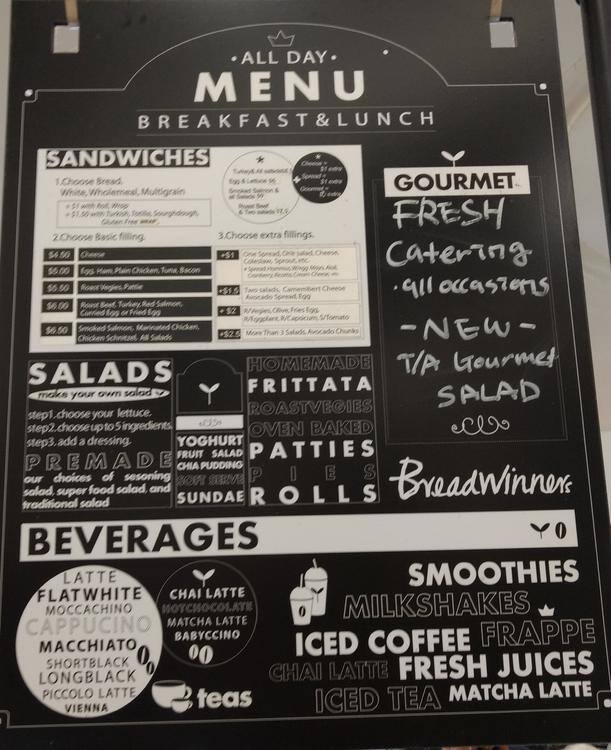 ·ALL DAY·
MENU
BREAKFAST&LUNCH
SANDWICHES
1.Choose Bread.
White, Wholemeal, Multigrain
+ $1 with Roll, Wrap
+ $1.50 with Turkish, Totilla, Sourghdough,
Gluten Free
*
Turkey& All salads
Egg & Lettuce
Smoked Salmon &
all Salads
Roast Beef
& Two salads
*
Cheese +
$1 extra
Spread +
$1 extra
Gourmet +
extra
2.Choose Basic filling.
$4.50 Cheese
$5.00 Egg, Ham, Plain Chicken, Tuna, Bacon
$5.50 Roast Vegies, Pattie
$6.00 Roast Beef, Turkey, Red Salmon,
Curried Egg or Fried Egg
$6.50 Smoked Salmon, Marinated Chicken,
Chicken Schnitzel, All Salads
3.Choose extra fillings.
+$1 One Spread, One salad, Cheese,
Coleslaw, Sprout, etc.
+$1.5 Two salads, Camembert Cheese
Avocado Spread, Egg
+ $2 R/Vegies, Olive, Fries Egg,
R/Eggplant, R/Capcicum, S/Tomato
+$2.5 More Than 3 Salads, Avocado Chunks
GOURMET
FRESH
Catering
·all occasions
-NEW-
T/A Gourmet
SALAD
BreadWinners
SALADS
make your own salad
step1.choose your lettuce.
step2.choose up to 5 ingredients
step3. add a dressing.
PREMADE
our choices of sesoning
salad, super food salad, and
traditional salad
YOGHURT
FRUIT SALAD
CHIA PUDDING
SOFT SERVE
SUNDAE
HOMEMADE
FRITTATA
ROASTVEGIES
OVEN BAKED
PATTIES
PIES
ROLLS
BEVERAGES
LATTE
FLATWHITE
MOCCACHINO
CAPPUCINO
MACCHIATO
SHORTBLACK
LONGBLACK
PICCOLO LATTE
VIENNA
CHAI LATTE
HOTCHOCOLATE
MATCHA LATTE
BABYCCINO
teas
SMOOTHIES
MILKSHAKES
ICED COFFEE FRAPPE
CHAI LATTE FRESH JUICES
ICED TEA MATCHA LATTE